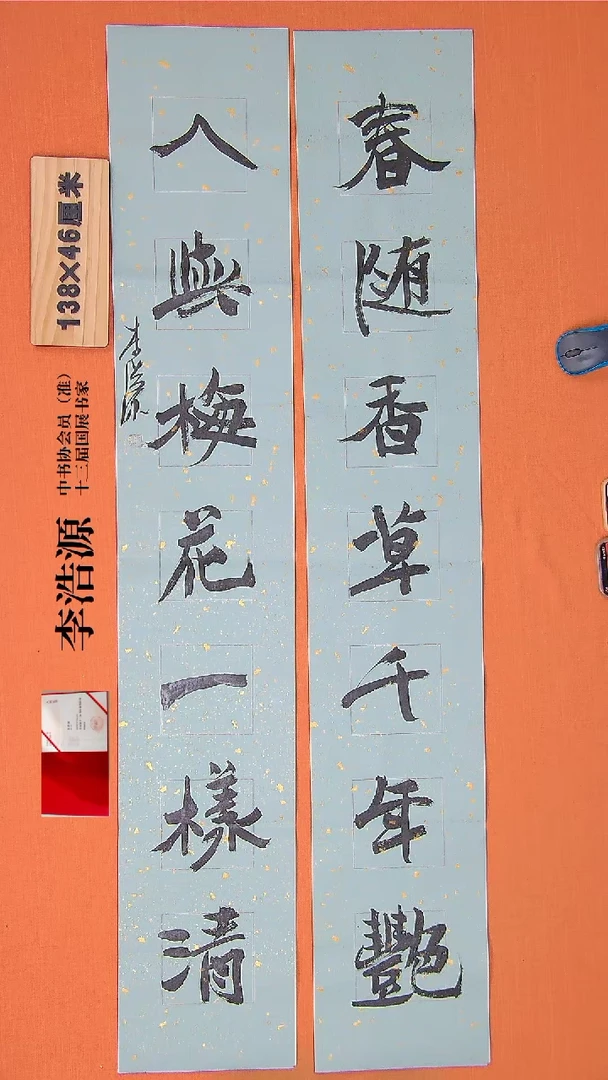 春随香草千年艷
人與梅花一樣清
李浩源
138×46厘米
李浩源
中书协会员（准）
十三届国展书家